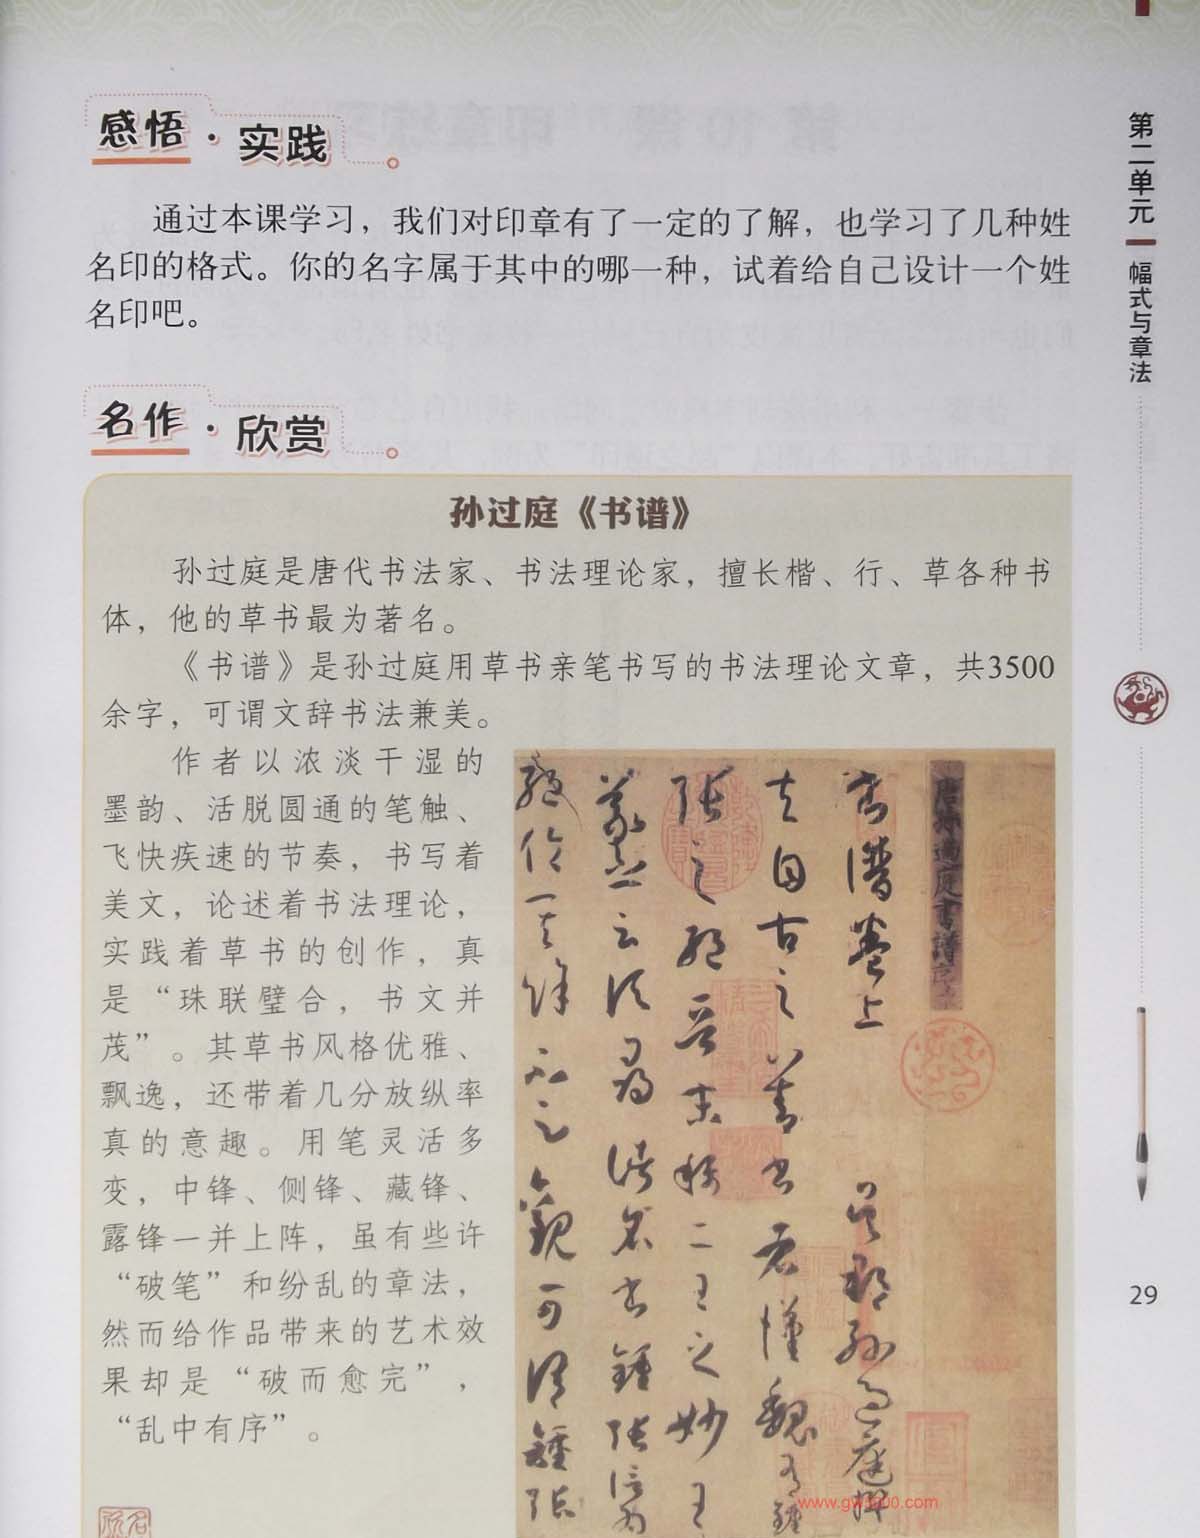 感悟·实践
通过本课学习，我们对印章有了一定的了解，也学习了几种姓
名印的格式。你的名字属于其中的哪一种，试着给自己设计一个姓
名印吧。
名作·欣赏
孙过庭《书谱》
孙过庭是唐代书法家、书法理论家，擅长楷、行、草各种书
体，他的草书最为著名。
《书谱》是孙过庭用草书亲笔书写的书法理论文章，共3500
余字，可谓文辞书法兼美。
作者以浓淡干湿的
墨韵、活脱圆通的笔触、
飞快疾速的节奏，书写着
美文，论述着书法理论，
实践着草书的创作，真
是“珠联璧合，书文并
茂”。其草书风格优雅、
飘逸，还带着几分放纵率
真的意趣。用笔灵活多
变，中锋、侧锋、藏锋、
露锋一并上阵，虽有些许
“破笔”和纷乱的章法，
然而给作品带来的艺术效
果却是“破而愈完”，
“乱中有序”。
唐孫過庭書譜序
書譜卷上 吳郡孫過庭撰
夫自古之善書者漢魏有鍾
張之絕晉末稱二王之妙王
羲之云頃尋諸名書鍾張信為
絕倫其餘不足觀可謂鍾張
第二单元
幅式与章法
29
www.gw500.com